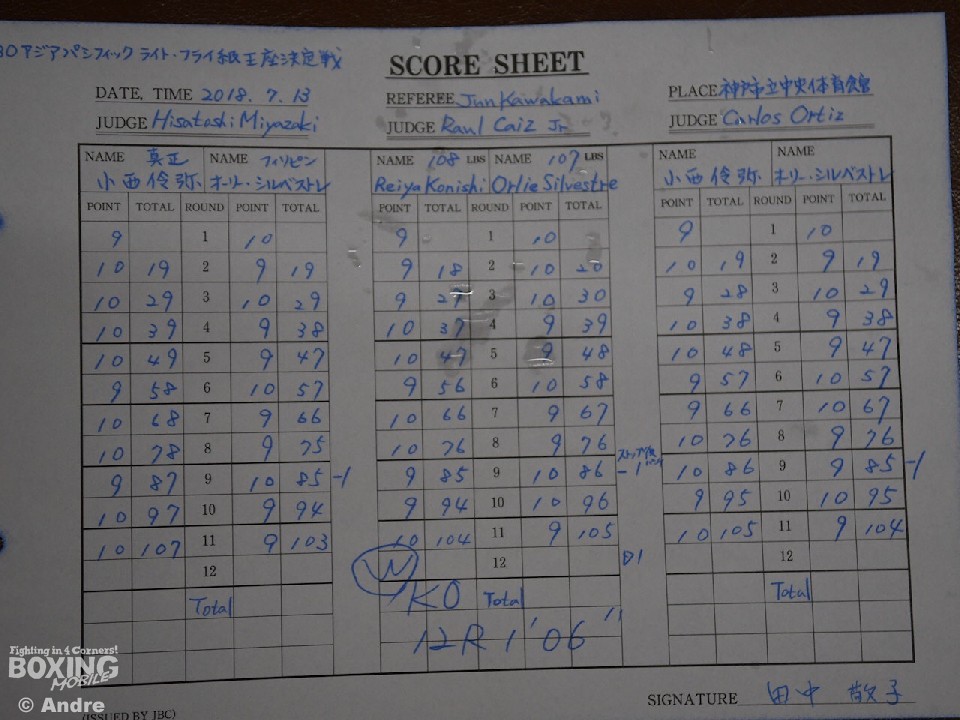 BOアジアパシフィック ライト・フライ級王座決定戦
SCORE SHEET
DATE, TIME 2018. 7. 13 REFEREE Jun Kawakami PLACE 神戸市立中央体育館
JUDGE Hisatoshi Miyazaki JUDGE Raul Caiz Jr JUDGE Carlos Ortiz
NAME 真正 NAME フィリピン NAME 108 LBS NAME 107 LBS NAME NAME
小西伶弥 オーリー・シルベストレ Reiya Konishi Orlie Silvestre 小西伶弥 オーリー・シルベストレ
POINT TOTAL ROUND POINT TOTAL POINT TOTAL ROUND POINT TOTAL POINT TOTAL ROUND POINT TOTAL
9 1 10 9 1 10 9 1 10
10 19 2 9 19 9 18 2 10 20 10 19 2 9 19
10 29 3 10 29 9 27 3 10 30 9 28 3 10 29
10 39 4 9 38 10 37 4 9 39 10 38 4 9 38
10 49 5 9 47 10 47 5 9 48 10 48 5 9 47
9 58 6 10 57 9 56 6 10 58 9 57 6 10 57
10 68 7 9 66 10 66 7 9 67 9 66 7 10 67
10 78 8 9 75 10 76 8 9 76 10 76 8 9 76
9 87 9 10 85 -1 9 85 9 10 86 -1 10 86 9 9 85 -1
10 97 10 9 94 9 94 10 10 96 9 95 10 10 95
10 107 11 9 103 10 104 11 9 105 10 105 11 9 104
12 W 12 D1 12
Total KO Total Total
12R 1'06"
Fighting in 4 Corners!
BOXING
MOBILE
© Andre
SIGNATURE 田中 敬子
(ISSUED BY JBC)